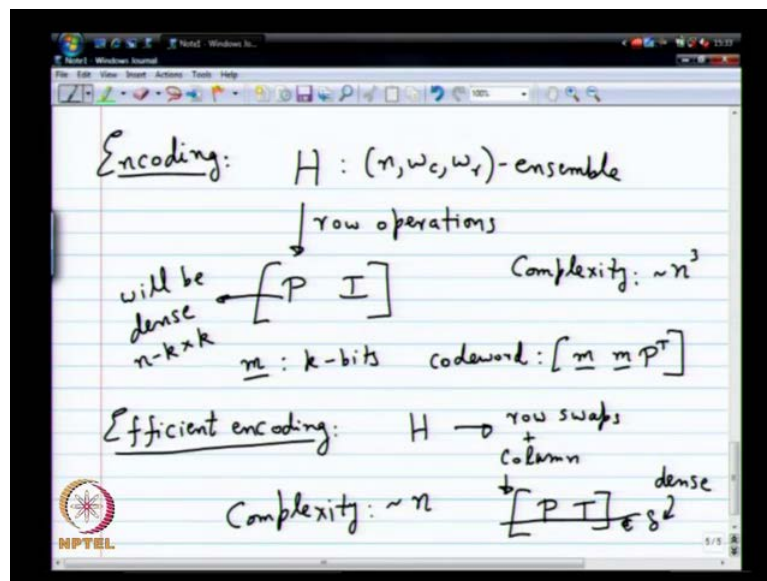 Note1 - Windows Jo...
15:33
Note1 - Windows Journal
File Edit View Insert Actions Tools Help
100%
Encoding: H : (n, wc, wr) - ensemble
row operations
will be dense n-k×k [P I] Complexity: ~n³
m : k-bits codeword : [m m Pᵀ]
Efficient encoding: H → row swaps
+
column
dense
Complexity: ~n [P T] g
5/5
NPTEL